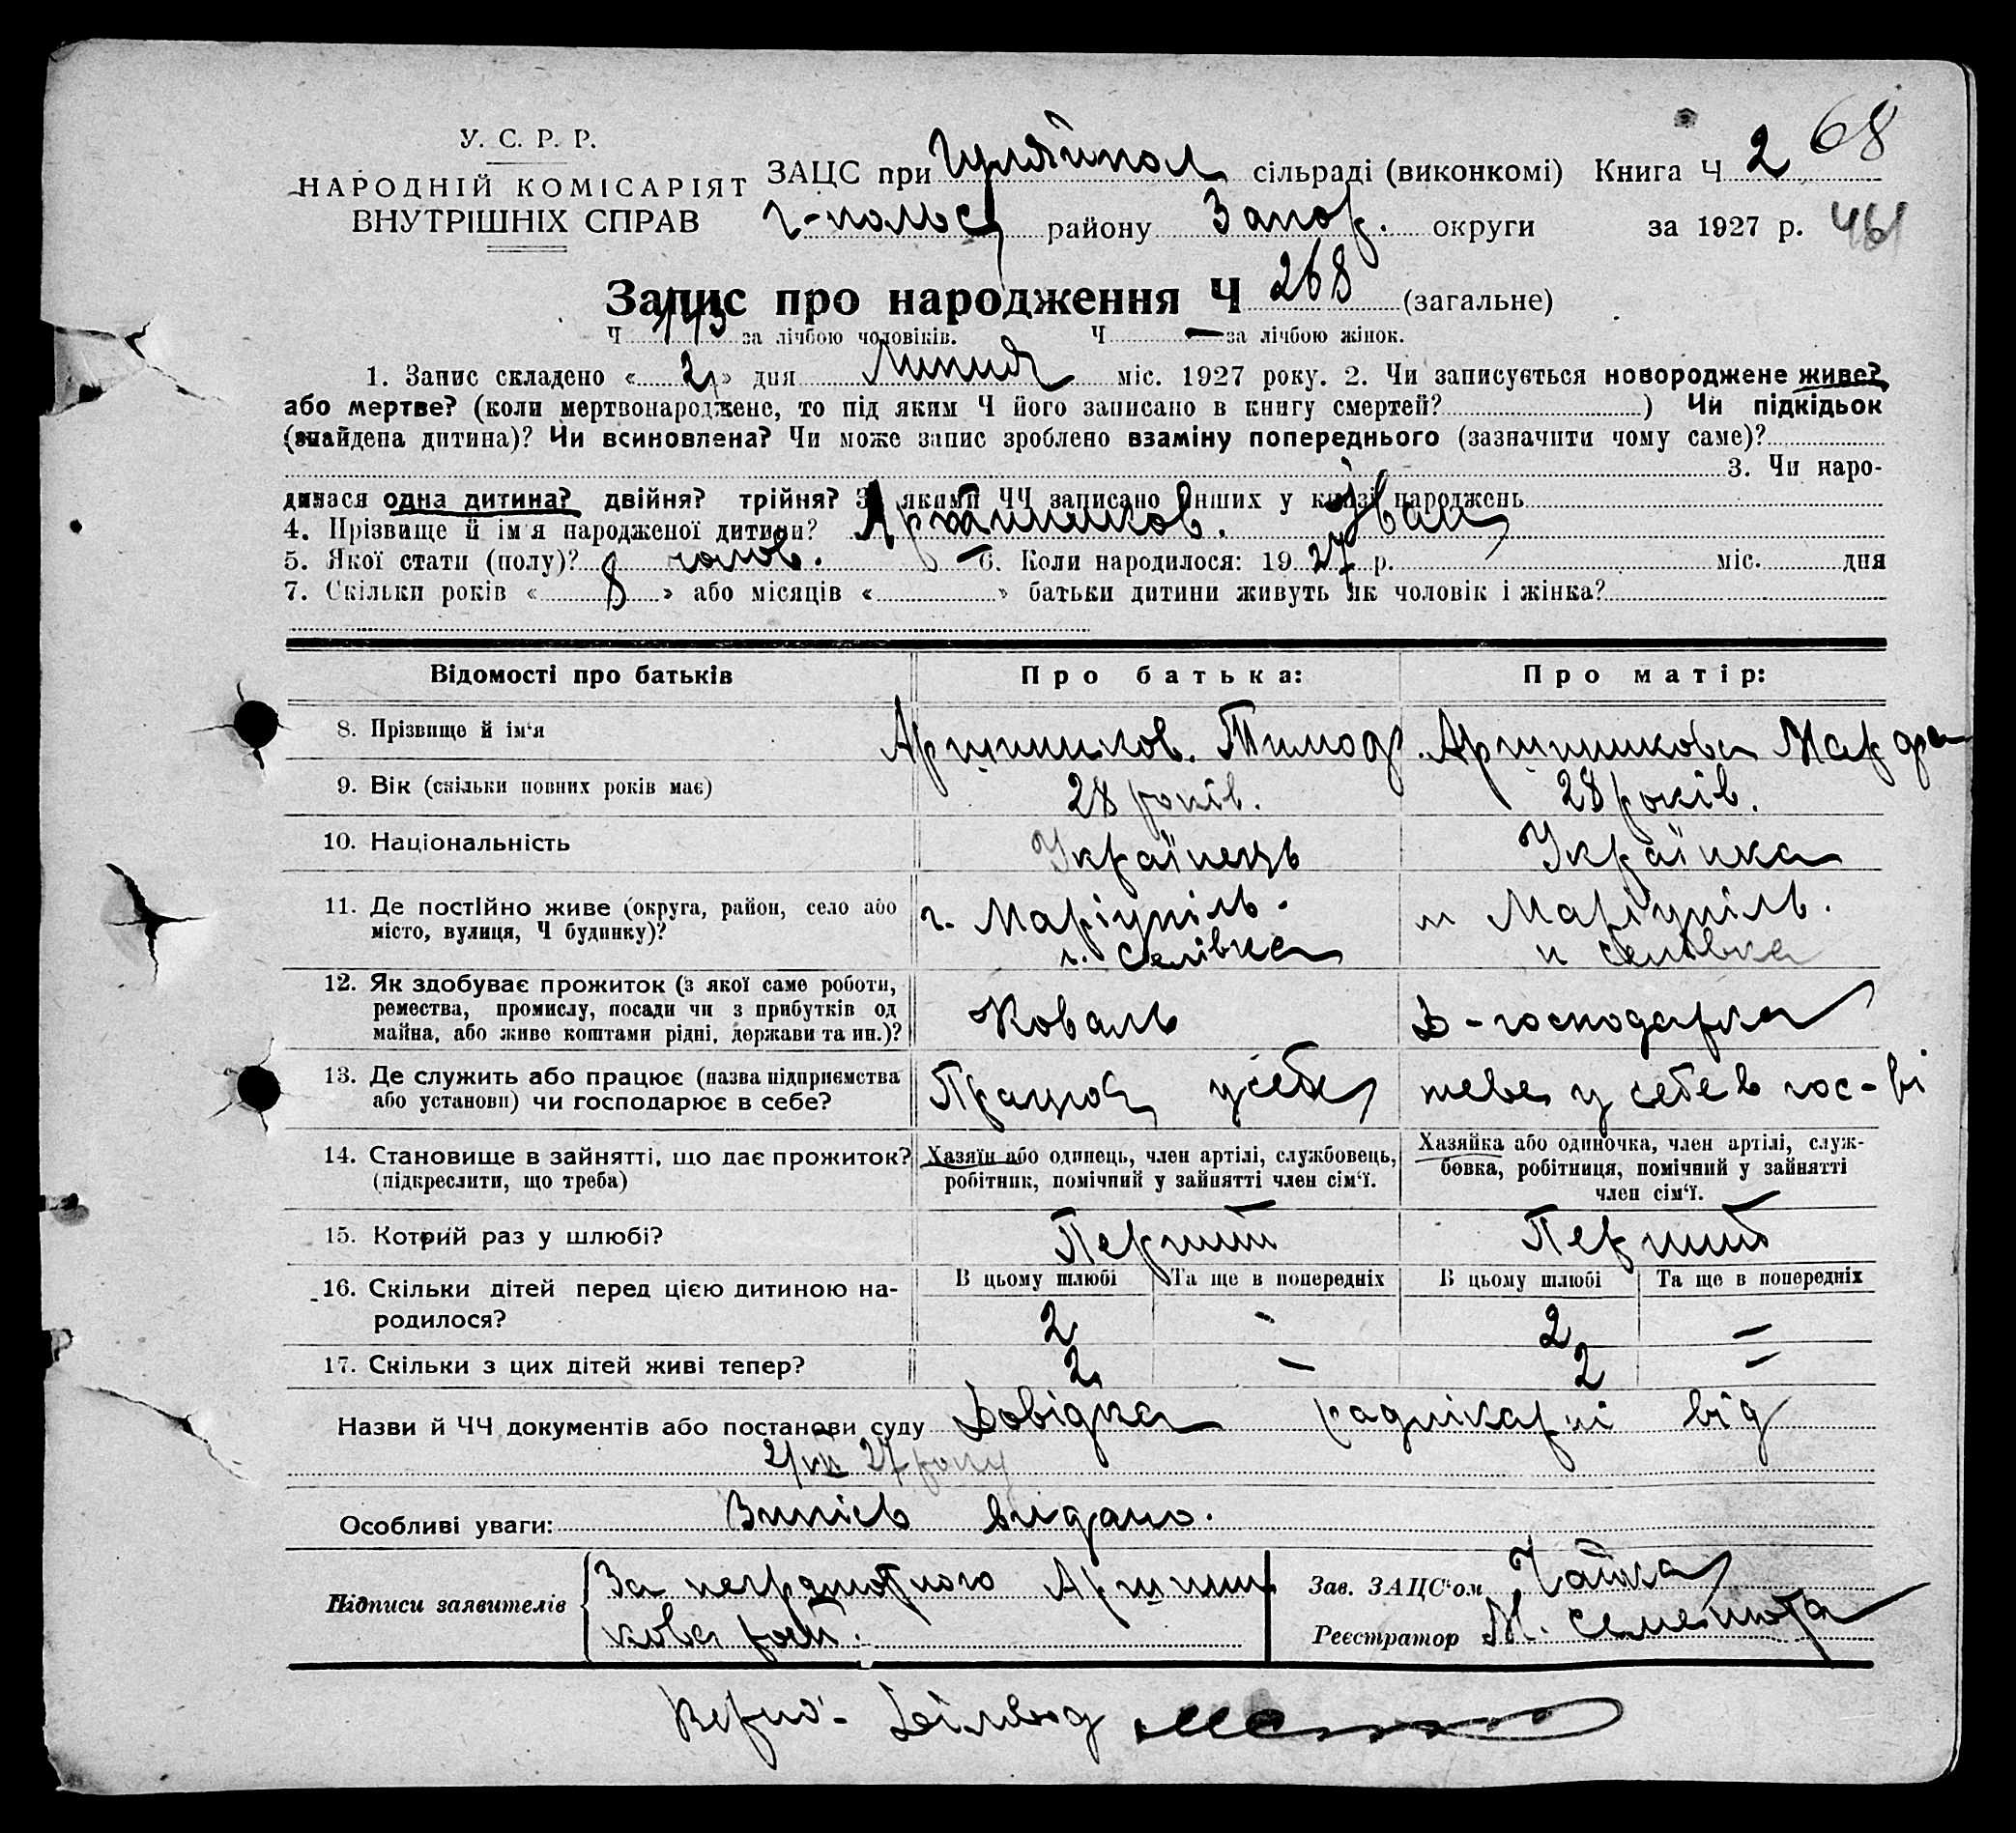 У. С. Р. Р.
НАРОДНІЙ КОМІСАРІЯТ
ВНУТРІШНІХ СПРАВ
ЗАЦС при Гуляйпол сільраді (виконкомі) Книга Ч 2 68
г-польс району Запор. округи за 1927 р. 461
Запис про народження Ч 268 (загальне)
Ч 143 за лічбою чоловіків. Ч — за лічбою жінок.
1. Запис складено « 2 » дня Липня міс. 1927 року. 2. Чи записується новороджене живе?
або мертве? (коли мертвонароджене, то під яким Ч його записано в книгу смертей? ) Чи підкідьок
(знайдена дитина)? Чи всиновлена? Чи може запис зроблено взаміну попереднього (зазначити чому саме)?
3. Чи наро-
дилася одна дитина? двійня? трійня? З якими ЧЧ записано інших у книзі народжень
4. Прізвище й ім'я народженої дитини? Аршинников. Іван
5. Якої стати (полу)? чолов. 6. Коли народилося: 1927 р. міс. дня
7. Скільки років « 8 » або місяців « » батьки дитини живуть як чоловік і жінка?
Відомості про батьків Про батька: Про матір:
8. Прізвище й ім'я Аршинников. Тимоф. Аршинникова Марфа
9. Вік (скільки повних років має) 28 років. 28 років.
10. Національність Українець Українка
11. Де постійно живе (округа, район, село або
місто, вулиця, Ч будинку)?
г. Маріупіль. м Маріупіль.
Селівка и Селівка
12. Як здобуває прожиток (з якої саме роботи,
ремества, промислу, посади чи з прибутків од
майна, або живе коштами рідні, держави та ин.)?
Коваль Д-господарка
13. Де служить або працює (назва підприємства
або установи) чи господарює в себе?
Працює у себе у себе в гос-ві
14. Становище в зайнятті, що дає прожиток?
(підкреслити, що треба)
Хазяїн або одинець, член артілі, службовець,
робітник, помічний у зайнятті член сім'ї.
Хазяйка або одиночка, член артілі, служ-
бовка, робітниця, помічний у зайнятті
член сім'ї.
15. Котрий раз у шлюбі? Перший Перший
16. Скільки дітей перед цією дитиною на-
родилося?
В цьому шлюбі Та ще в попередніх В цьому шлюбі Та ще в попередніх
2 - 2 —
17. Скільки з цих дітей живі тепер? 2 — 2 —
Назви й ЧЧ документів або постанови суду Довідка радлікарні від
2/VII 27 року
Особливі уваги: Випісь видано.
Підписи заявителів За неграмотного Аршинни
кова розп.
Зав. ЗАЦС'ом Чайка
Реєстратор М. Семенюта